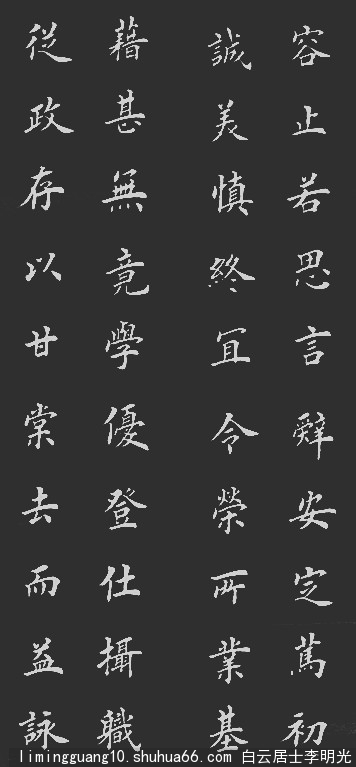 容止若思言辭安定篤初
誠美慎終宜令榮所業基
藉甚無竟學優登仕攝職
從政存以甘棠去而益詠
limingguang10.shuhua66.com 白云居士李明光